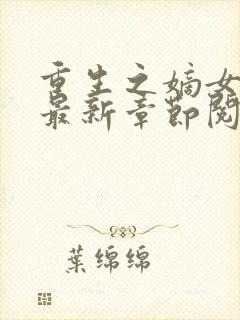 重生之嫡女
最新章節閱
葉綿綿